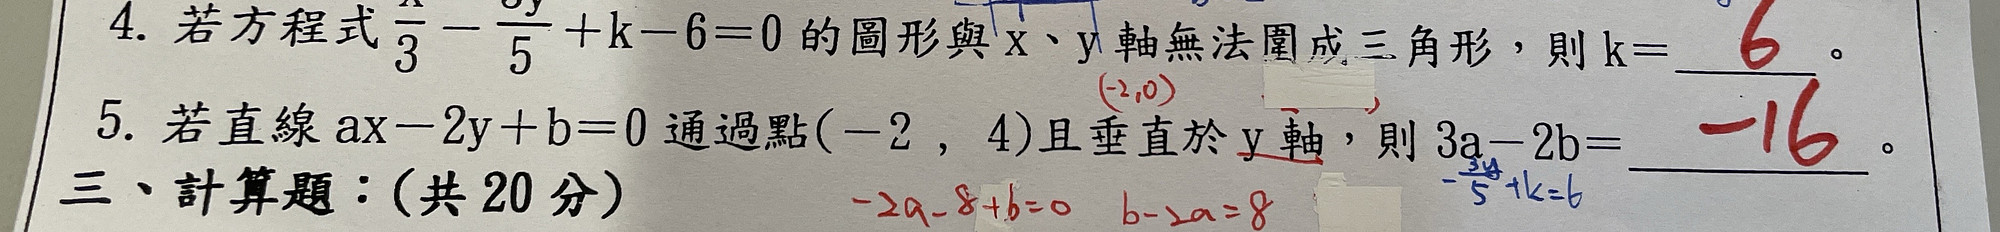 4. 若方程式 x/3 − 3y/5 +k−6=0 的圖形與 x、y 軸無法圍成三角形，則 k= 6 。
(-2,0)
5. 若直線 ax−2y+b=0 通過點(−2 , 4)且垂直於 y 軸，則 3a−2b= -16 。
-3y/5 +k=6
三、計算題：(共 20 分)
-2a-8+b=0 b-2a=8